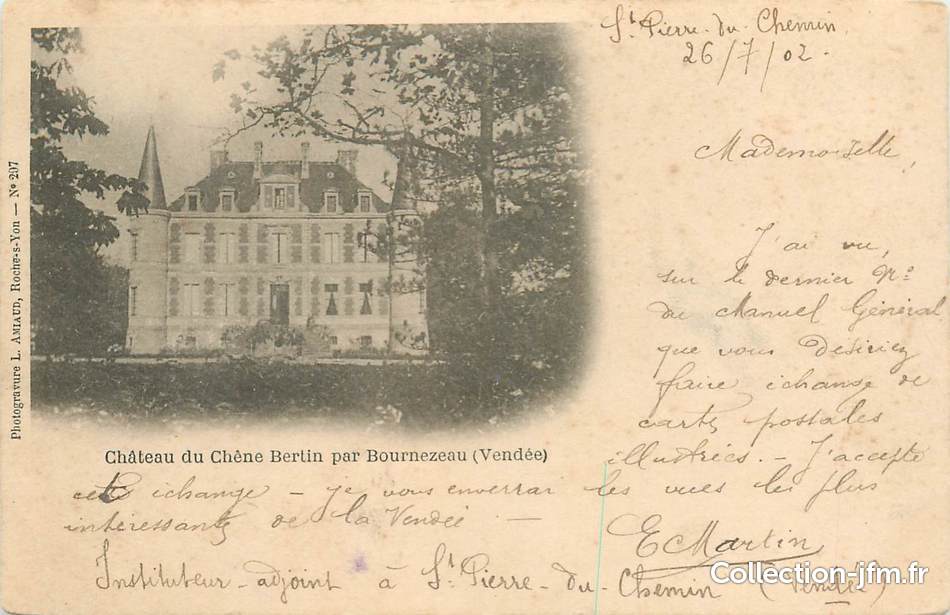 St Pierre-du-Chemin
26/7/02.
Mademoiselle,
J'ai vu,
sur le dernier No
du Manuel Général
que vous desiriez
faire échange de
cartes postales
illustrées. - J'accepte
cet échange - je vous enverrai les vues les plus
intéressantes de la Vendée -
E Martin
Instituteur-adjoint à St Pierre-du-Chemin (Vendée)
Château du Chêne Bertin par Bournezeau (Vendée)
Photogravure L. AMIAUD, Roche-s-Yon — No 207
Collection-jfm.fr